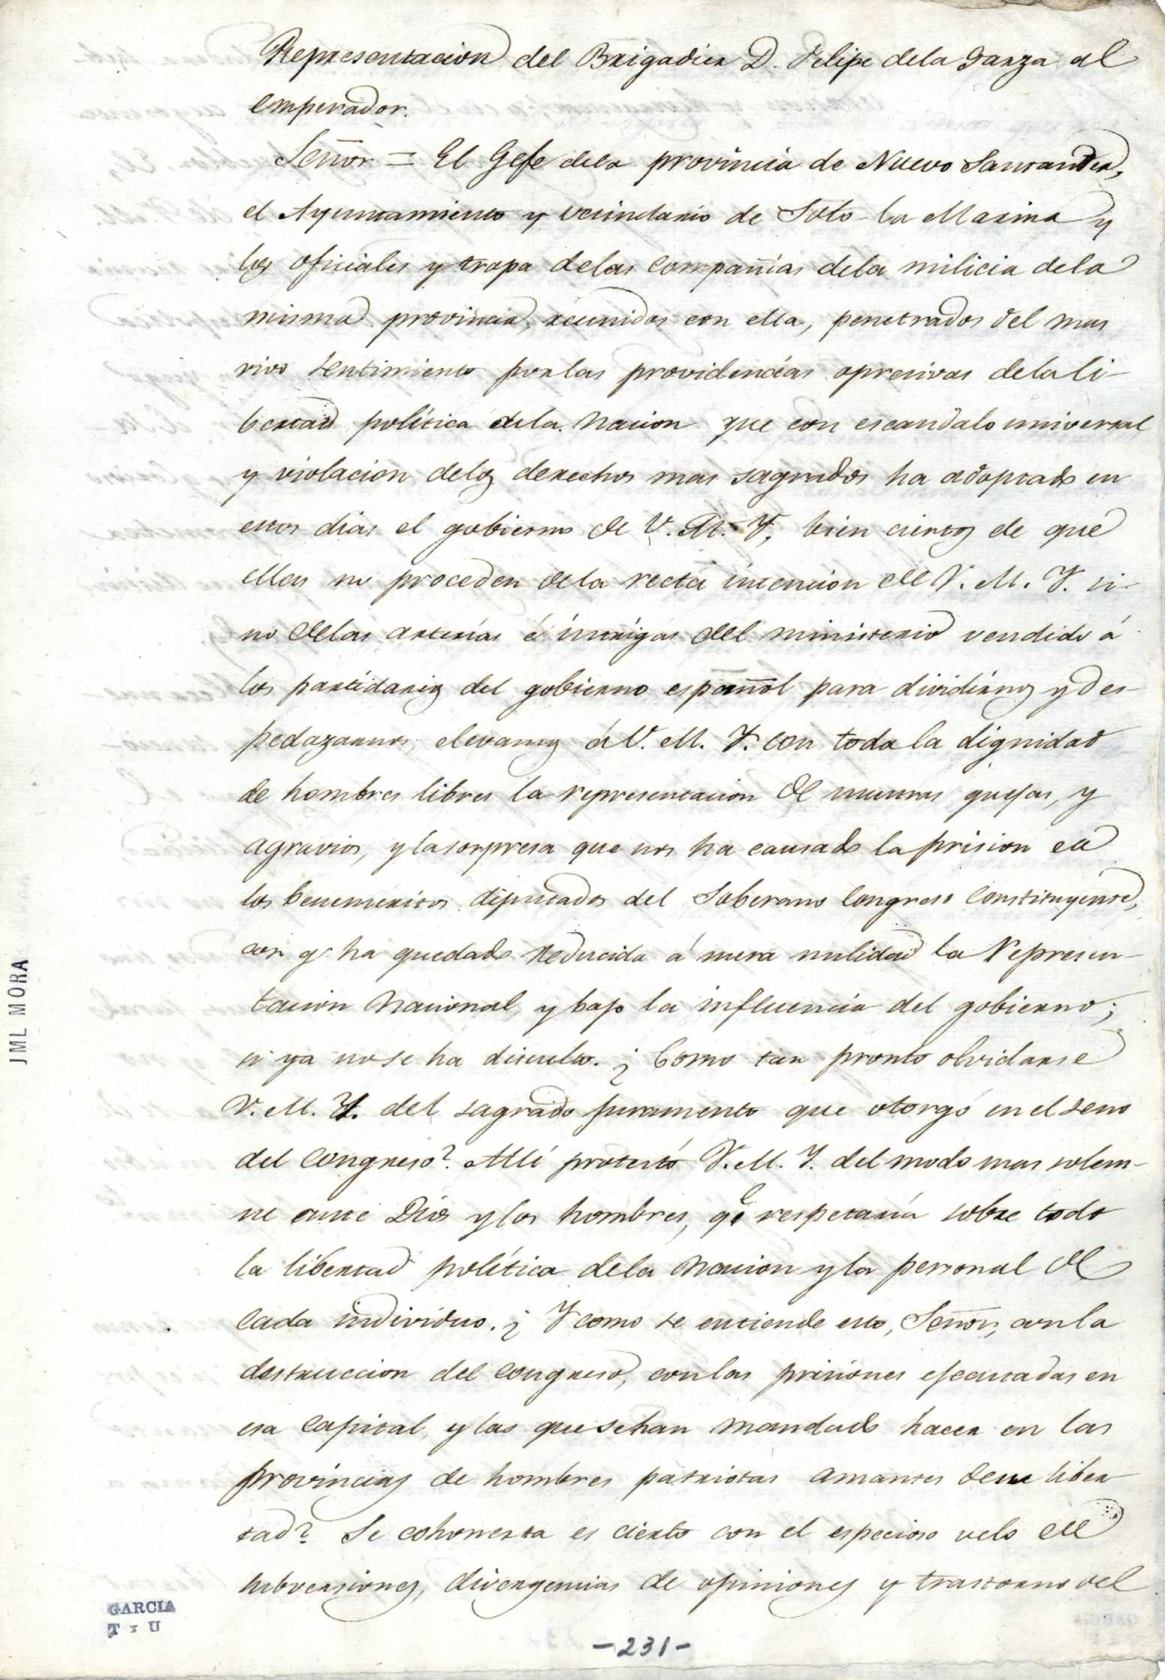 Representacion del Brigadier D. Felipe dela Garza al
Emperador.
Señor = El Gefe dela provincia de Nuevo Santander,
el Ayuntamiento y vecindario de Soto la Marina y
los oficiales y tropa delas compañias dela milicia dela
misma provincia, reunidos con ella, penetrados del mas
vivo sentimiento por las providencias opresivas dela li-
bertad política dela Nacion que con escandalo universal
y violacion delos derechos mas sagrados ha adoptado en
estos dias el gobierno de V. M. Y, bien ciertos de que
ellas no proceden dela recta intencion de V. M. Y. si-
no delas arterías é intrigas del ministerio vendido á
los partidarios del gobierno español para dividirnos y des-
pedazarnos, elevamos á V. M. Y. con toda la dignidad
de hombres libres la representacion de nuestras quejas, y
agravios, y la sorpresa que nos ha causado la prision de
los beneméritos diputados del Soberano Congreso Constituyente,
con q.e ha quedado reducida á mera nulidad la Represen-
tacion Nacional, y bajo la influencia del gobierno;
si ya no se ha disuelto. ¿Como tan pronto olvidarse
V. M. Y. del sagrado juramento que otorgó en el seno
del Congreso? Allí protestó V. M. Y. del modo mas solem-
ne ante Dios y los hombres, q.e respetaría sobre todo
la libertad política dela Nacion y la personal de
cada individuo. ¿Y como se entiende esto, Señor, con la
destruccion del congreso, con las prisiones ejecutadas en
esa Capital, y las que se han mandado hacer en las
provincias de hombres patriotas amantes de su liber
tad? Se cohonesta es cierto con el especioso velo de
subversiones, divergencias de opiniones y trastorno del
-231-
JML MORA
GARCIA